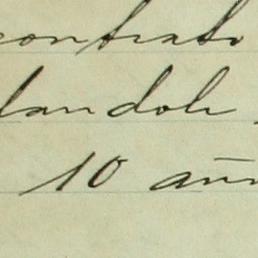 contrato
landole
10 añ